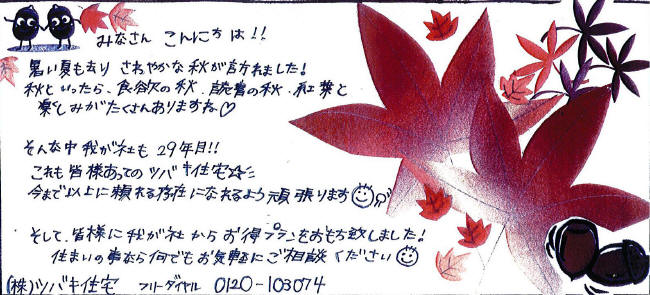 みなさん こんにちは!!
暑い夏も去り さわやかな秋が訪れました!
秋といったら、食欲の秋、読書の秋、紅葉と
楽しみがたくさんありますね♡
そんな中 我が社も 29年目!!
これも皆様あっての ツバキ住宅☆
今まで以上に頼れる存在になれるよう頑張ります
そして、皆様に我が社から お得プランをおもち致しました!
住まいの事なら何でもお気軽にご相談ください
(株)ツバキ住宅 フリーダイヤル 0120-103074